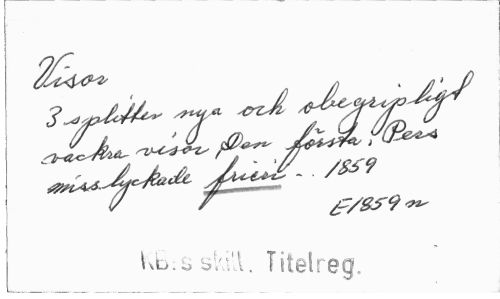 Visor
3 splitter nya och obegripligt
vackra visor, Den första: Pers
misslyckade frieri -.. 1859
E1859 n
KB:s skill. Titelreg.